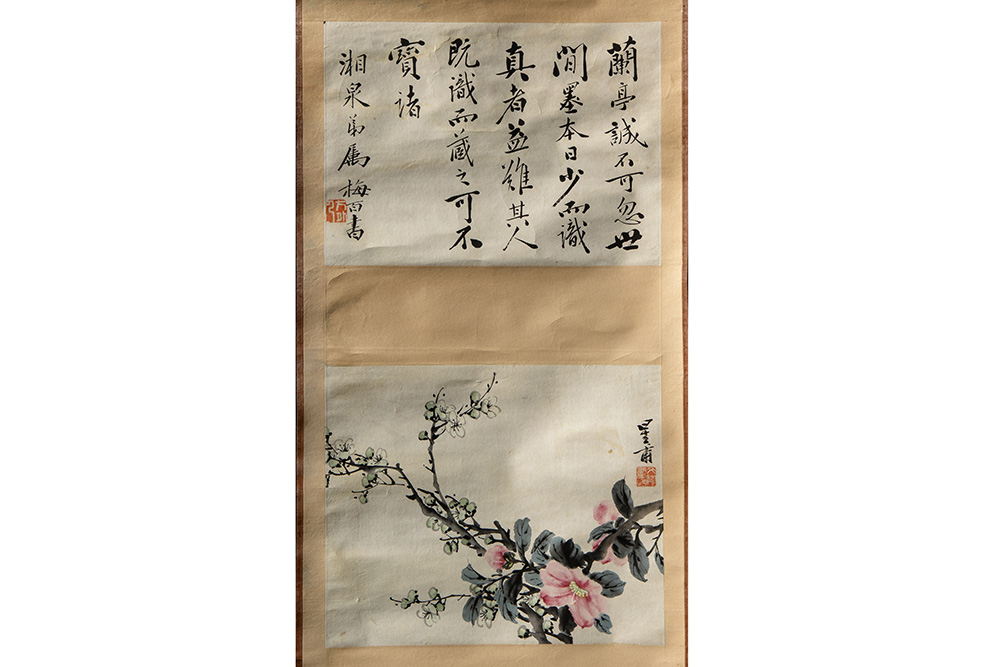 蘭亭誠不可忽世
間墨本日少而識
真者益難其人
既識而蔵之可不
寶諸
湘泉弟屬 梅
書
星甫